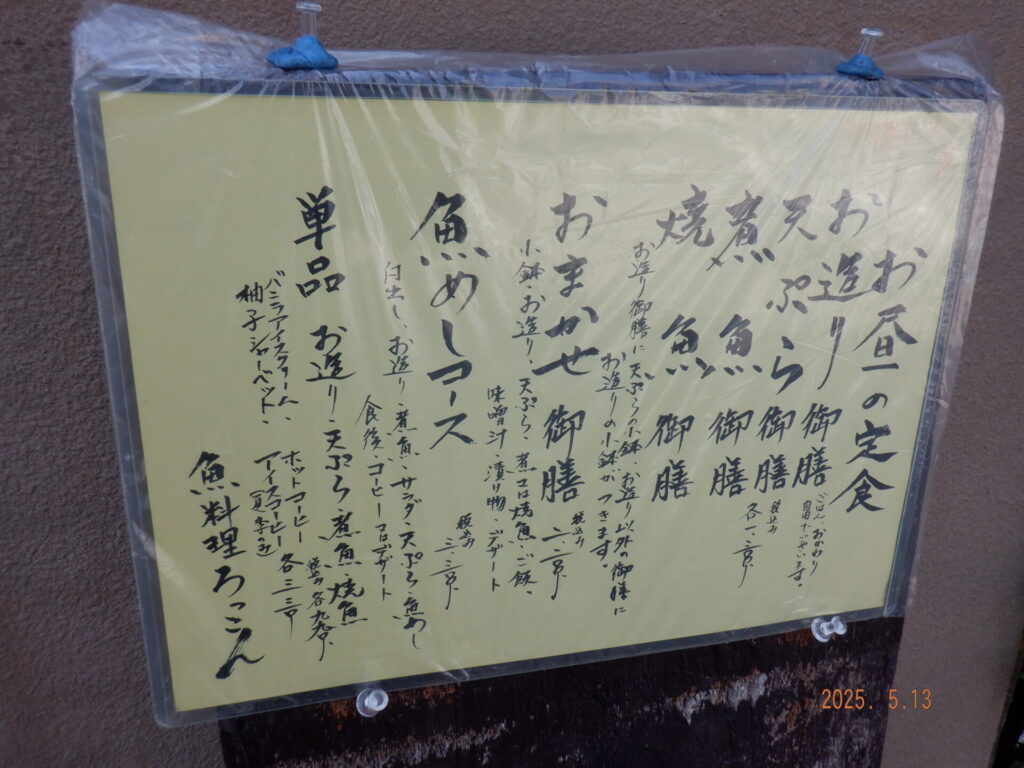 お昼の定食
お造り御膳
ごはん、おかわり
自由でございます。
天ぷら御膳
税込み
煮魚御膳
各
焼魚御膳
お造り御膳に天ぷら小鉢、お造り以外の御膳に
お造りの小鉢がつきます。
おまかせ御膳
税込み
小鉢、お造り、天ぷら、煮又は焼魚、ご飯、
味噌汁、漬け物、デザート
魚めしコース
税込み
白出し、お造り、煮魚、サラダ、天ぷら、魚めし
食後、コーヒー又はデザート
単品 お造り、天ぷら、煮魚、焼魚
税込み各
バニラアイスクリーム、
ホットコーヒー
柚子シャーベット、
アイスコーヒー
(夏季のみ)
各
魚料理ろっこん
2025. 5.13